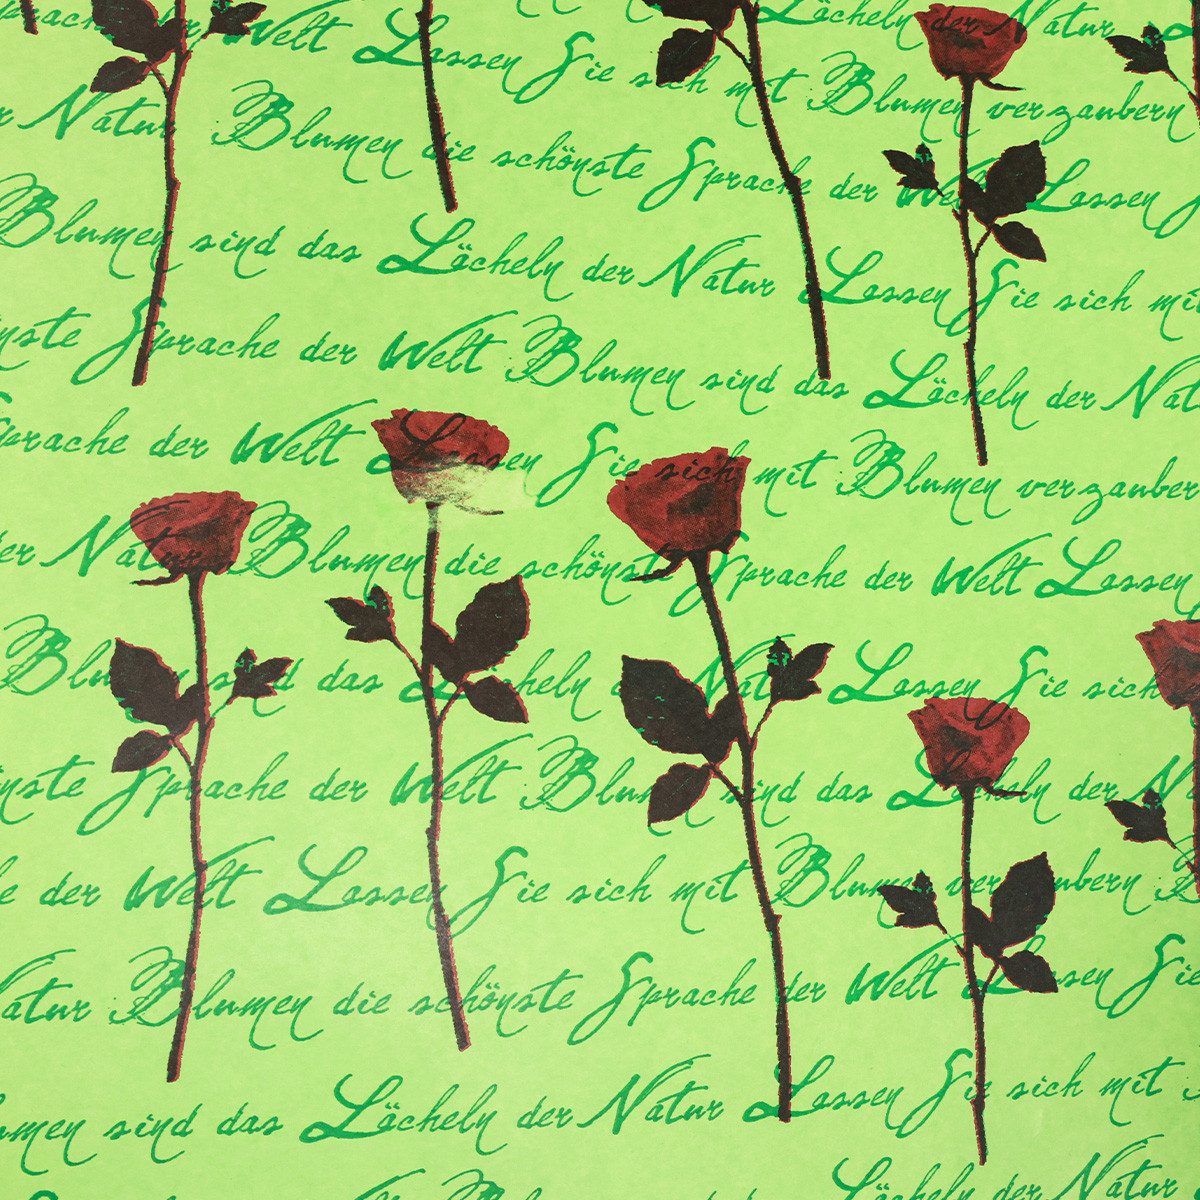 Sprache der Welt Lassen Sie sich mit Blumen verzaubern
Lächeln der Natur
der Natur Blumen die schönste Sprache der Welt Lassen
Blumen sind das Lächeln der Natur Lassen Sie sich mit
schönste Sprache der Welt Blumen sind das Lächeln der Natur
Sprache der Welt Lassen Sie sich mit Blumen verzaubern
der Natur Blumen die schönste Sprache der Welt Lassen
Blumen sind das Lächeln der Natur Lassen Sie sich
schönste Sprache der Welt Blumen sind das Lächeln der Natur
der Welt Lassen Sie sich mit Blumen verzaubern
Natur Blumen die schönste Sprache der Welt Lassen Sie
Blumen sind das Lächeln der Natur Lassen Sie sich mit
Lächeln der Natur